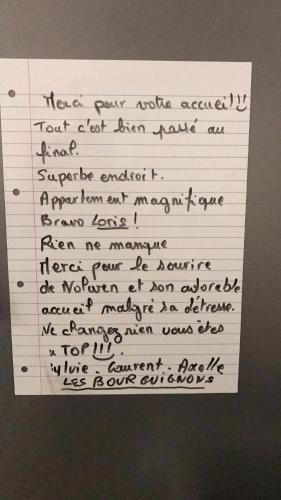 Merci pour votre accueil!!
Tout c'est bien passé au
final.
Superbe endroit.
Appartement magnifique
Bravo Loris!
Rien ne manque
Merci pour le sourire
de Nolwen et son adorable
accueil malgré sa détresse.
Ne changez rien vous êtes
TOP!!!.
ylvie - Laurent - Axelle
LES BOURGUIGNONS